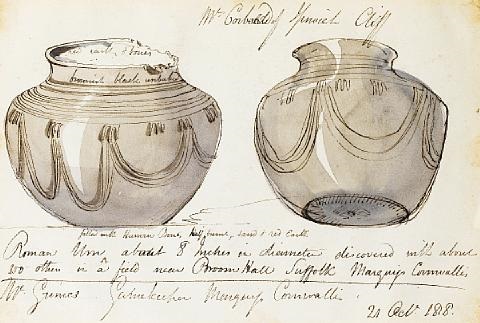 Mr. Corbould of Ipswich Cliff
red earth, & bones
brownish black
filled with Human Bones, Half burnt, sand & red Earth
Roman Urns about 8 Inches in diameter discovered with about
200 others in a field near Broom Hall Suffolk Marquys Cornwallis
Mr. Grimes Gamekeeper Marquys Cornwallis.
21 Oct. 1818.